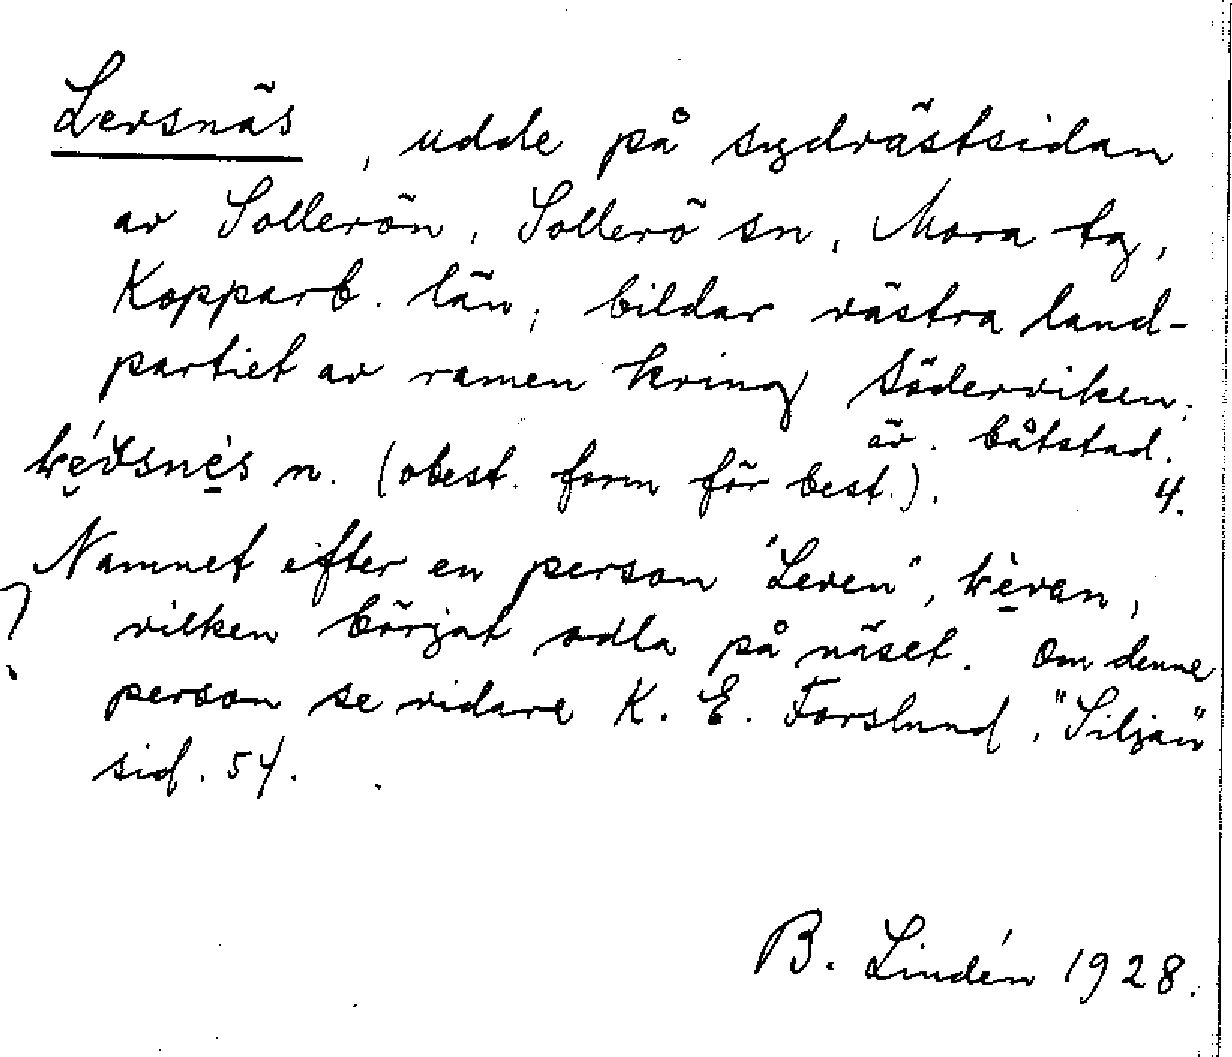 Levsnäs, udde på sydvästsidan
av Sollerön, Sollerö sn, Mora tg,
Kopparb. län, bildar västra land-
partiet av ramen kring Söderviken;
äv. båtstad.
n. (obest. form för best.). 4.
Namnet efter en person "Leven",
? vilken börjat odla på näset. Om denne
person se vidare K. E. Forslund, "Siljan"
sid. 54.
B. Lindén 1928.